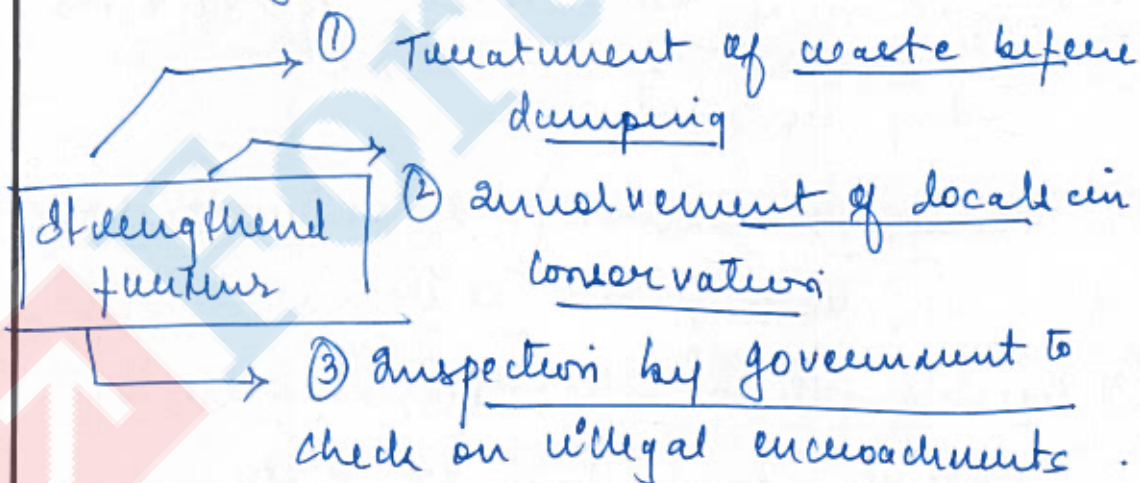 ① Treatment of waste before
dumping
Strengthend
② Involvement of locals in
further
conservation
③ Inspection by government to
check on illegal encroachments.
For